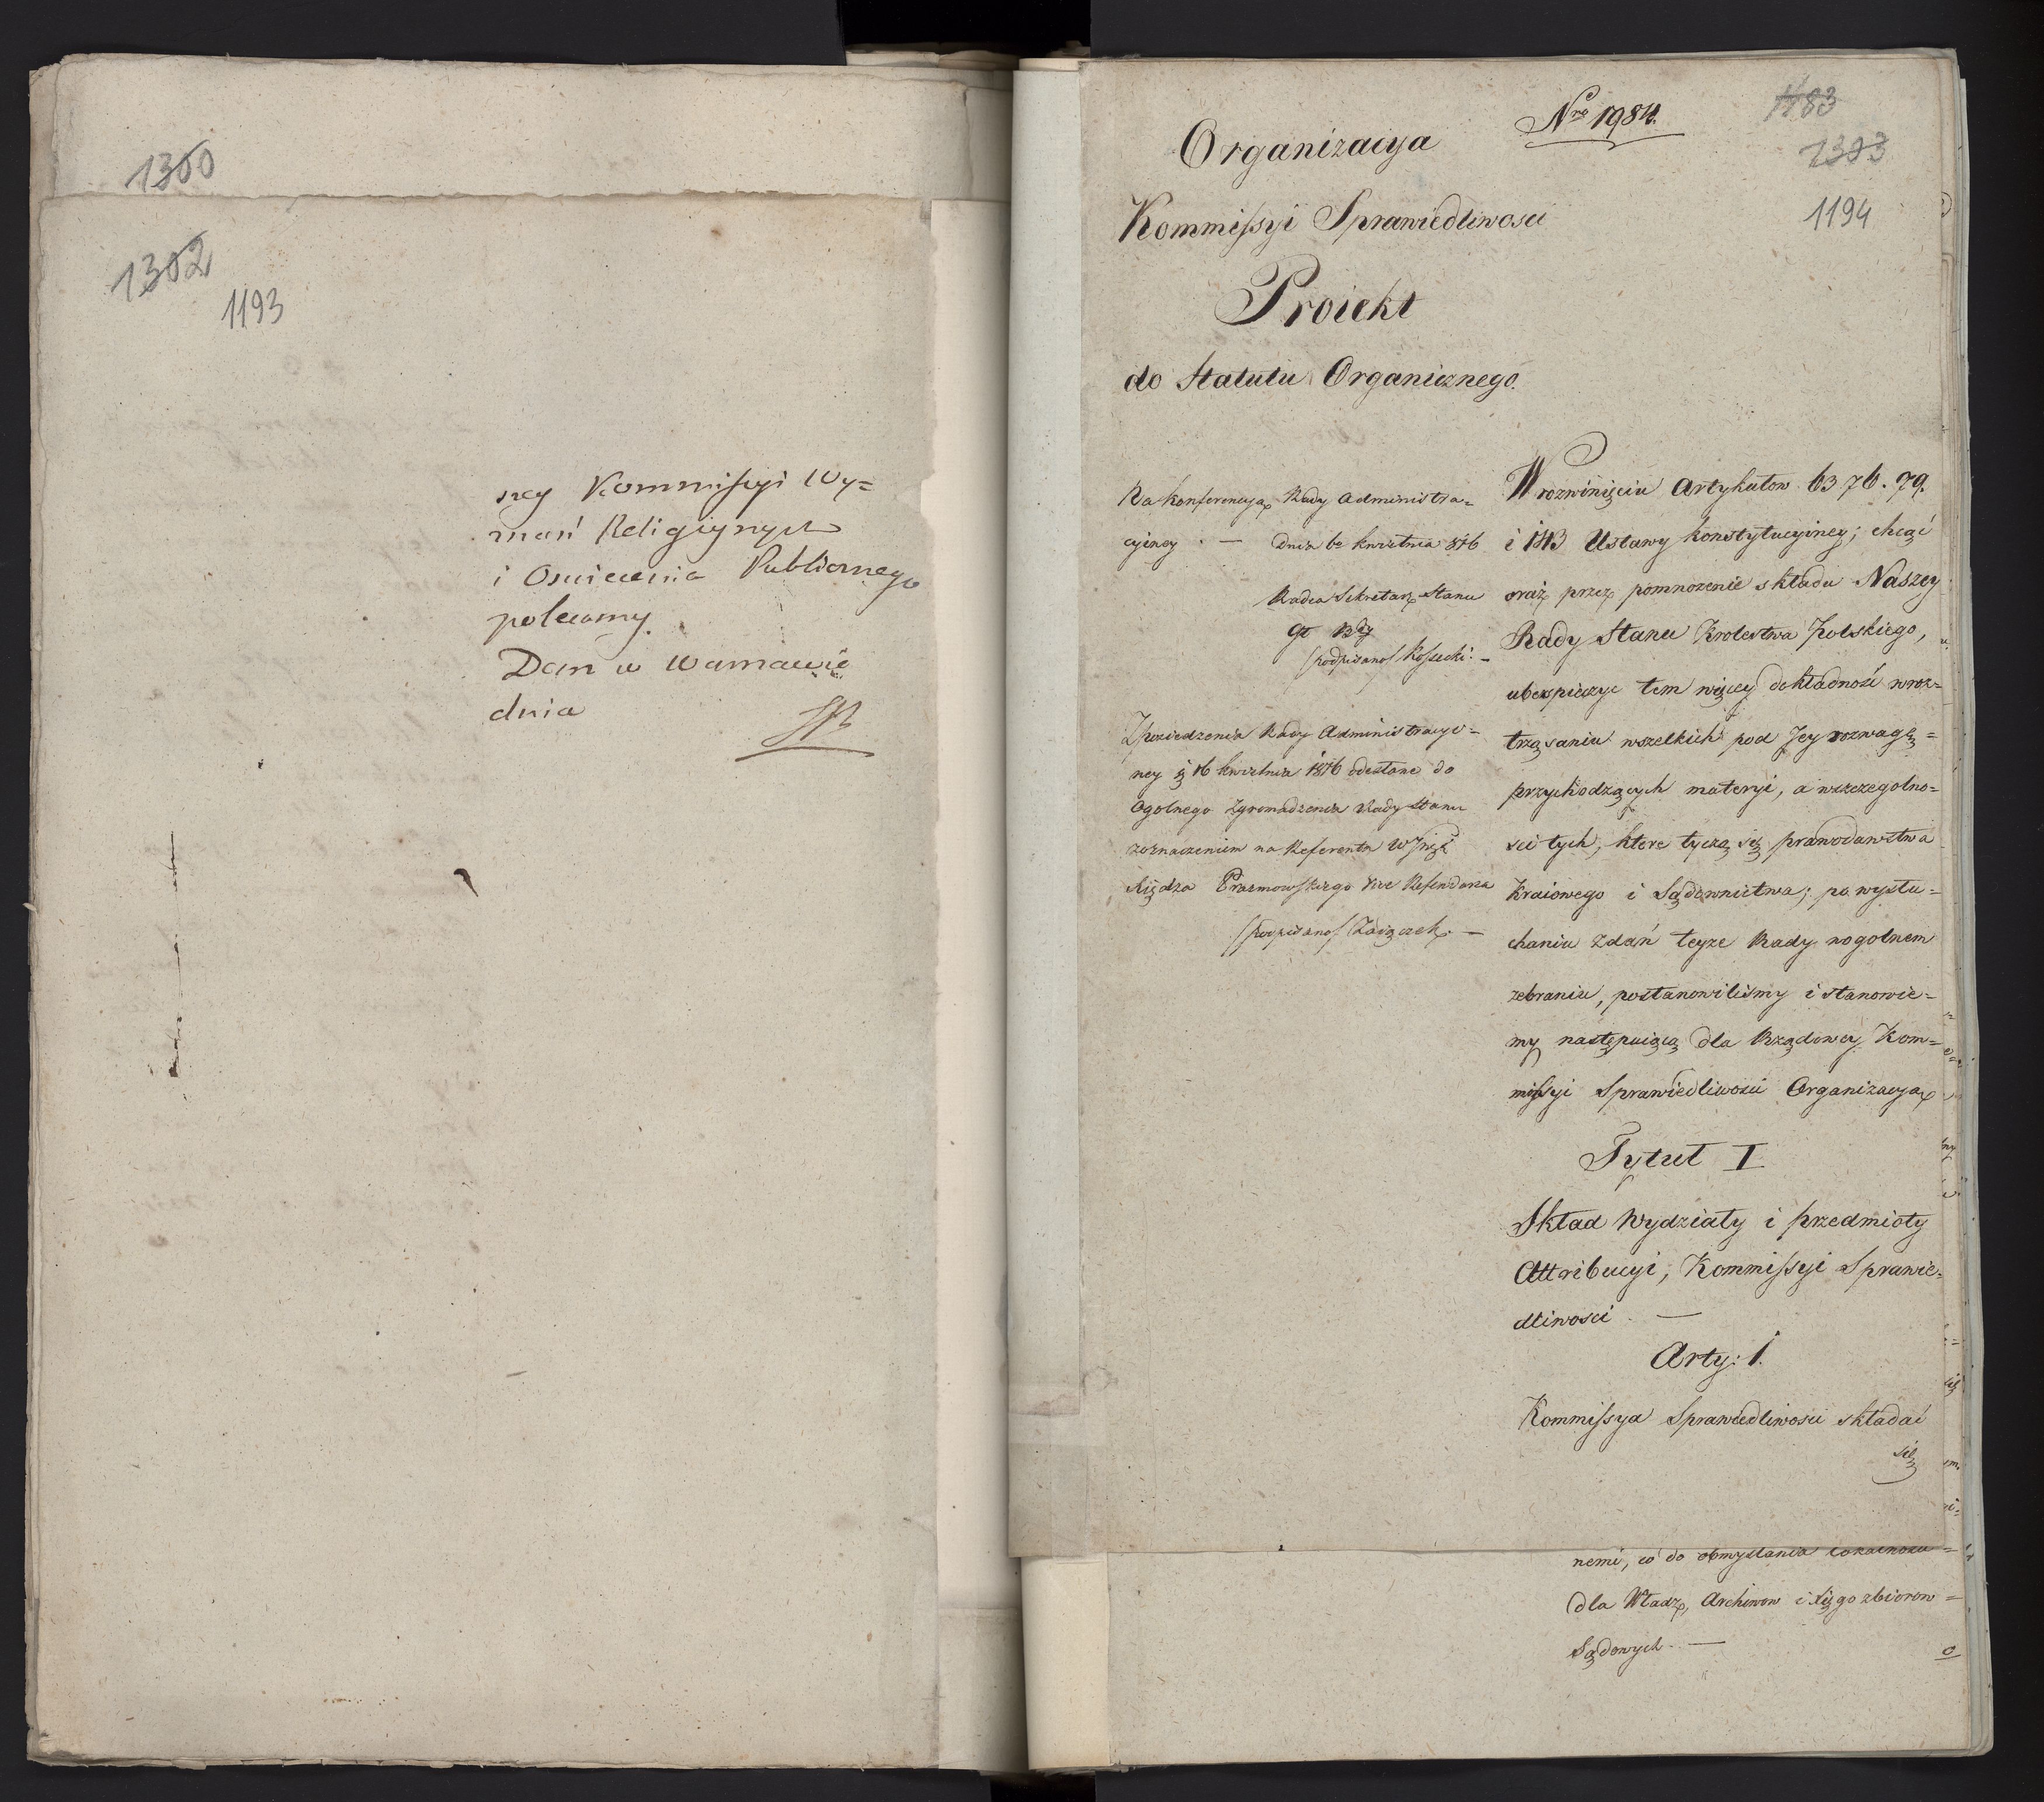 1300
1302
1193
szey Kommissyi Wy=
znań Religiynych
i Oswiecenia Publicznego
polecamy.
Dan w Warszawie
dnia
Nro 1984.
1183
1303
1194
Organizacya
Kommissyi Sprawiedliwosci
Proiekt
do Statutu Organicznego.
Na konferencyą Rady Administra=
cyiney. — dnia 6e kwietnia 1816
Radca Sekretarz Stanu
/podpisano/ Kossecki. —
Z posiedzenia Rady Administracyi=
ney 16 kwietnia 1816 odesłane do
Ogolnego Zgromadzenia Rady Stanu
z oznaczeniem na Referenta
Xiędza Prazmowskiego Referendarza
/podpisano/ Zaiączek. —
W rozwinięciu Artykułow 63. 76. 79.
i 113 Ustawy konstytucyiney; chcąć
oraz przez pomnozenie składu Naszey
Rady Stanu Krolestwa Polskiego,
ubezpieczyc tem więcey dokładność w roz=
trząsaniu wszelkich pod Jey rozwagę=
przychodzących materyi, a w szczegolno=
sci tych, ktore tyczą się prawodawstwa
Kraiowego i Sądownictwa; po wysłu=
chaniu Zdań teyze Rady w ogolnem
zebraniu, postanowiliśmy i stanowie=
my następuiącą dla Rządowey Kom=
missyi Sprawiedliwosci Organizacyą
Tytuł I
Skład Wydziały i przedmioty
Attribucyi, Kommissyi Sprawie=
dliwosci. —
Arty: 1.
Kommissya Sprawiedliwosci składać
się
nemi, co do obmyslania lokalnosci=
dla Władz, Archiwow i Xięgozbiorow=
Sądowych. —